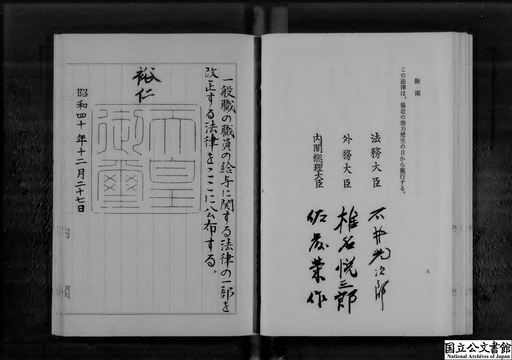 附則
この法律は、協定の効力発生の日から施行する。
法務大臣 石井光次郎
外務大臣 椎名悦三郎
内閣総理大臣 佐藤栄作
八
一般職の職員の給与に関する法律の一部を
改正する法律をここに公布する。
裕仁
天皇御璽
昭和四十年十二月二十七日
国立公文書館
National Archives of Japan